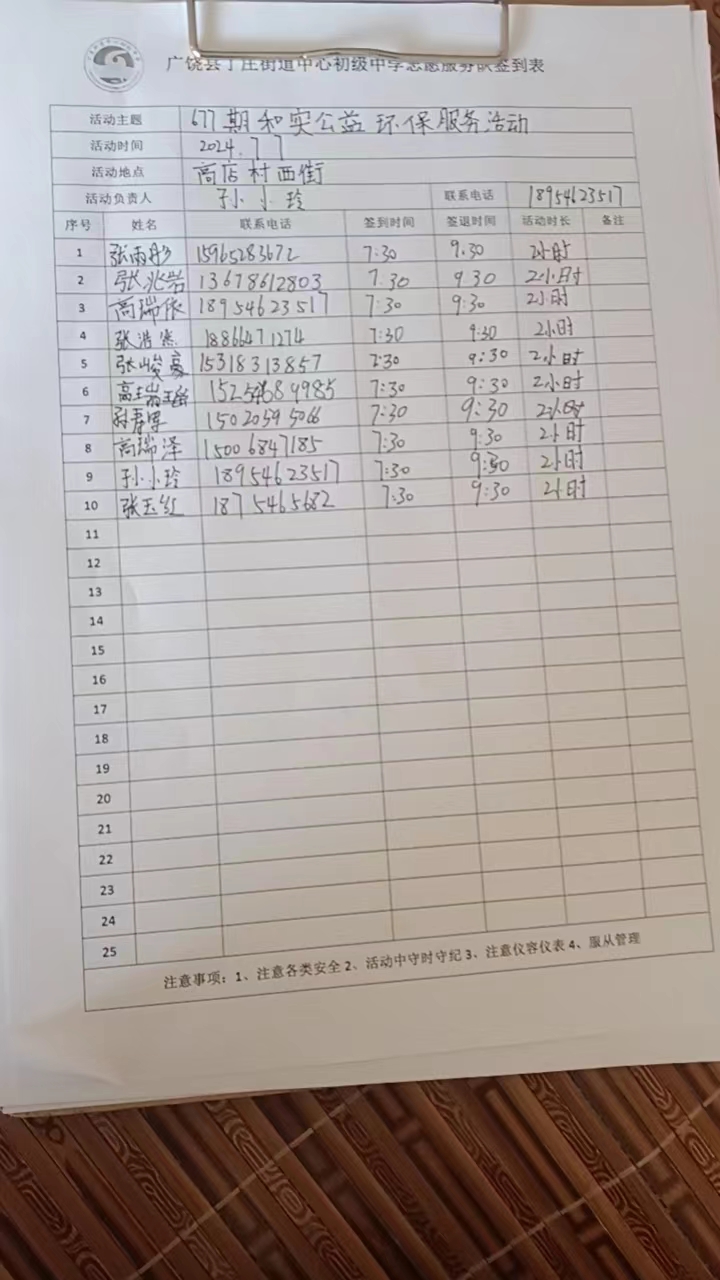 广饶县丁庄街道中心初级中学志愿服务队签到表
活动主题 677期和实公益环保服务活动
活动时间 2024.7.7
活动地点 高店村西街
活动负责人 孙小玲 联系电话 18954623517
序号 姓名 联系电话 签到时间 签退时间 活动时长 备注
1 张雨彤 15965283672 7:30 9.30 2小时
2 张兆岩 13678612803 7.30 9.30 2小时
3 高瑞依 18954623517 7:30 9:30 2小时
4 张浩 18866471274 7:30 9:30 2小时
5 张峻豪 15318313857 7:30 9:30 2小时
6 高 7:30 9:30 2小时
7 15020595066 7:30 9:30 2小时
8 高瑞泽 15006847185 7:30 9:30 2小时
9 孙小玲 18954623517 7:30 9:30 2小时
10 张玉红 18754465682 7:30 9:30 2小时
11
12
13
14
15
16
17
18
19
20
21
22
23
24
25
注意事项：1、注意各类安全 2、活动中守时守纪 3、注意仪容仪表 4、服从管理